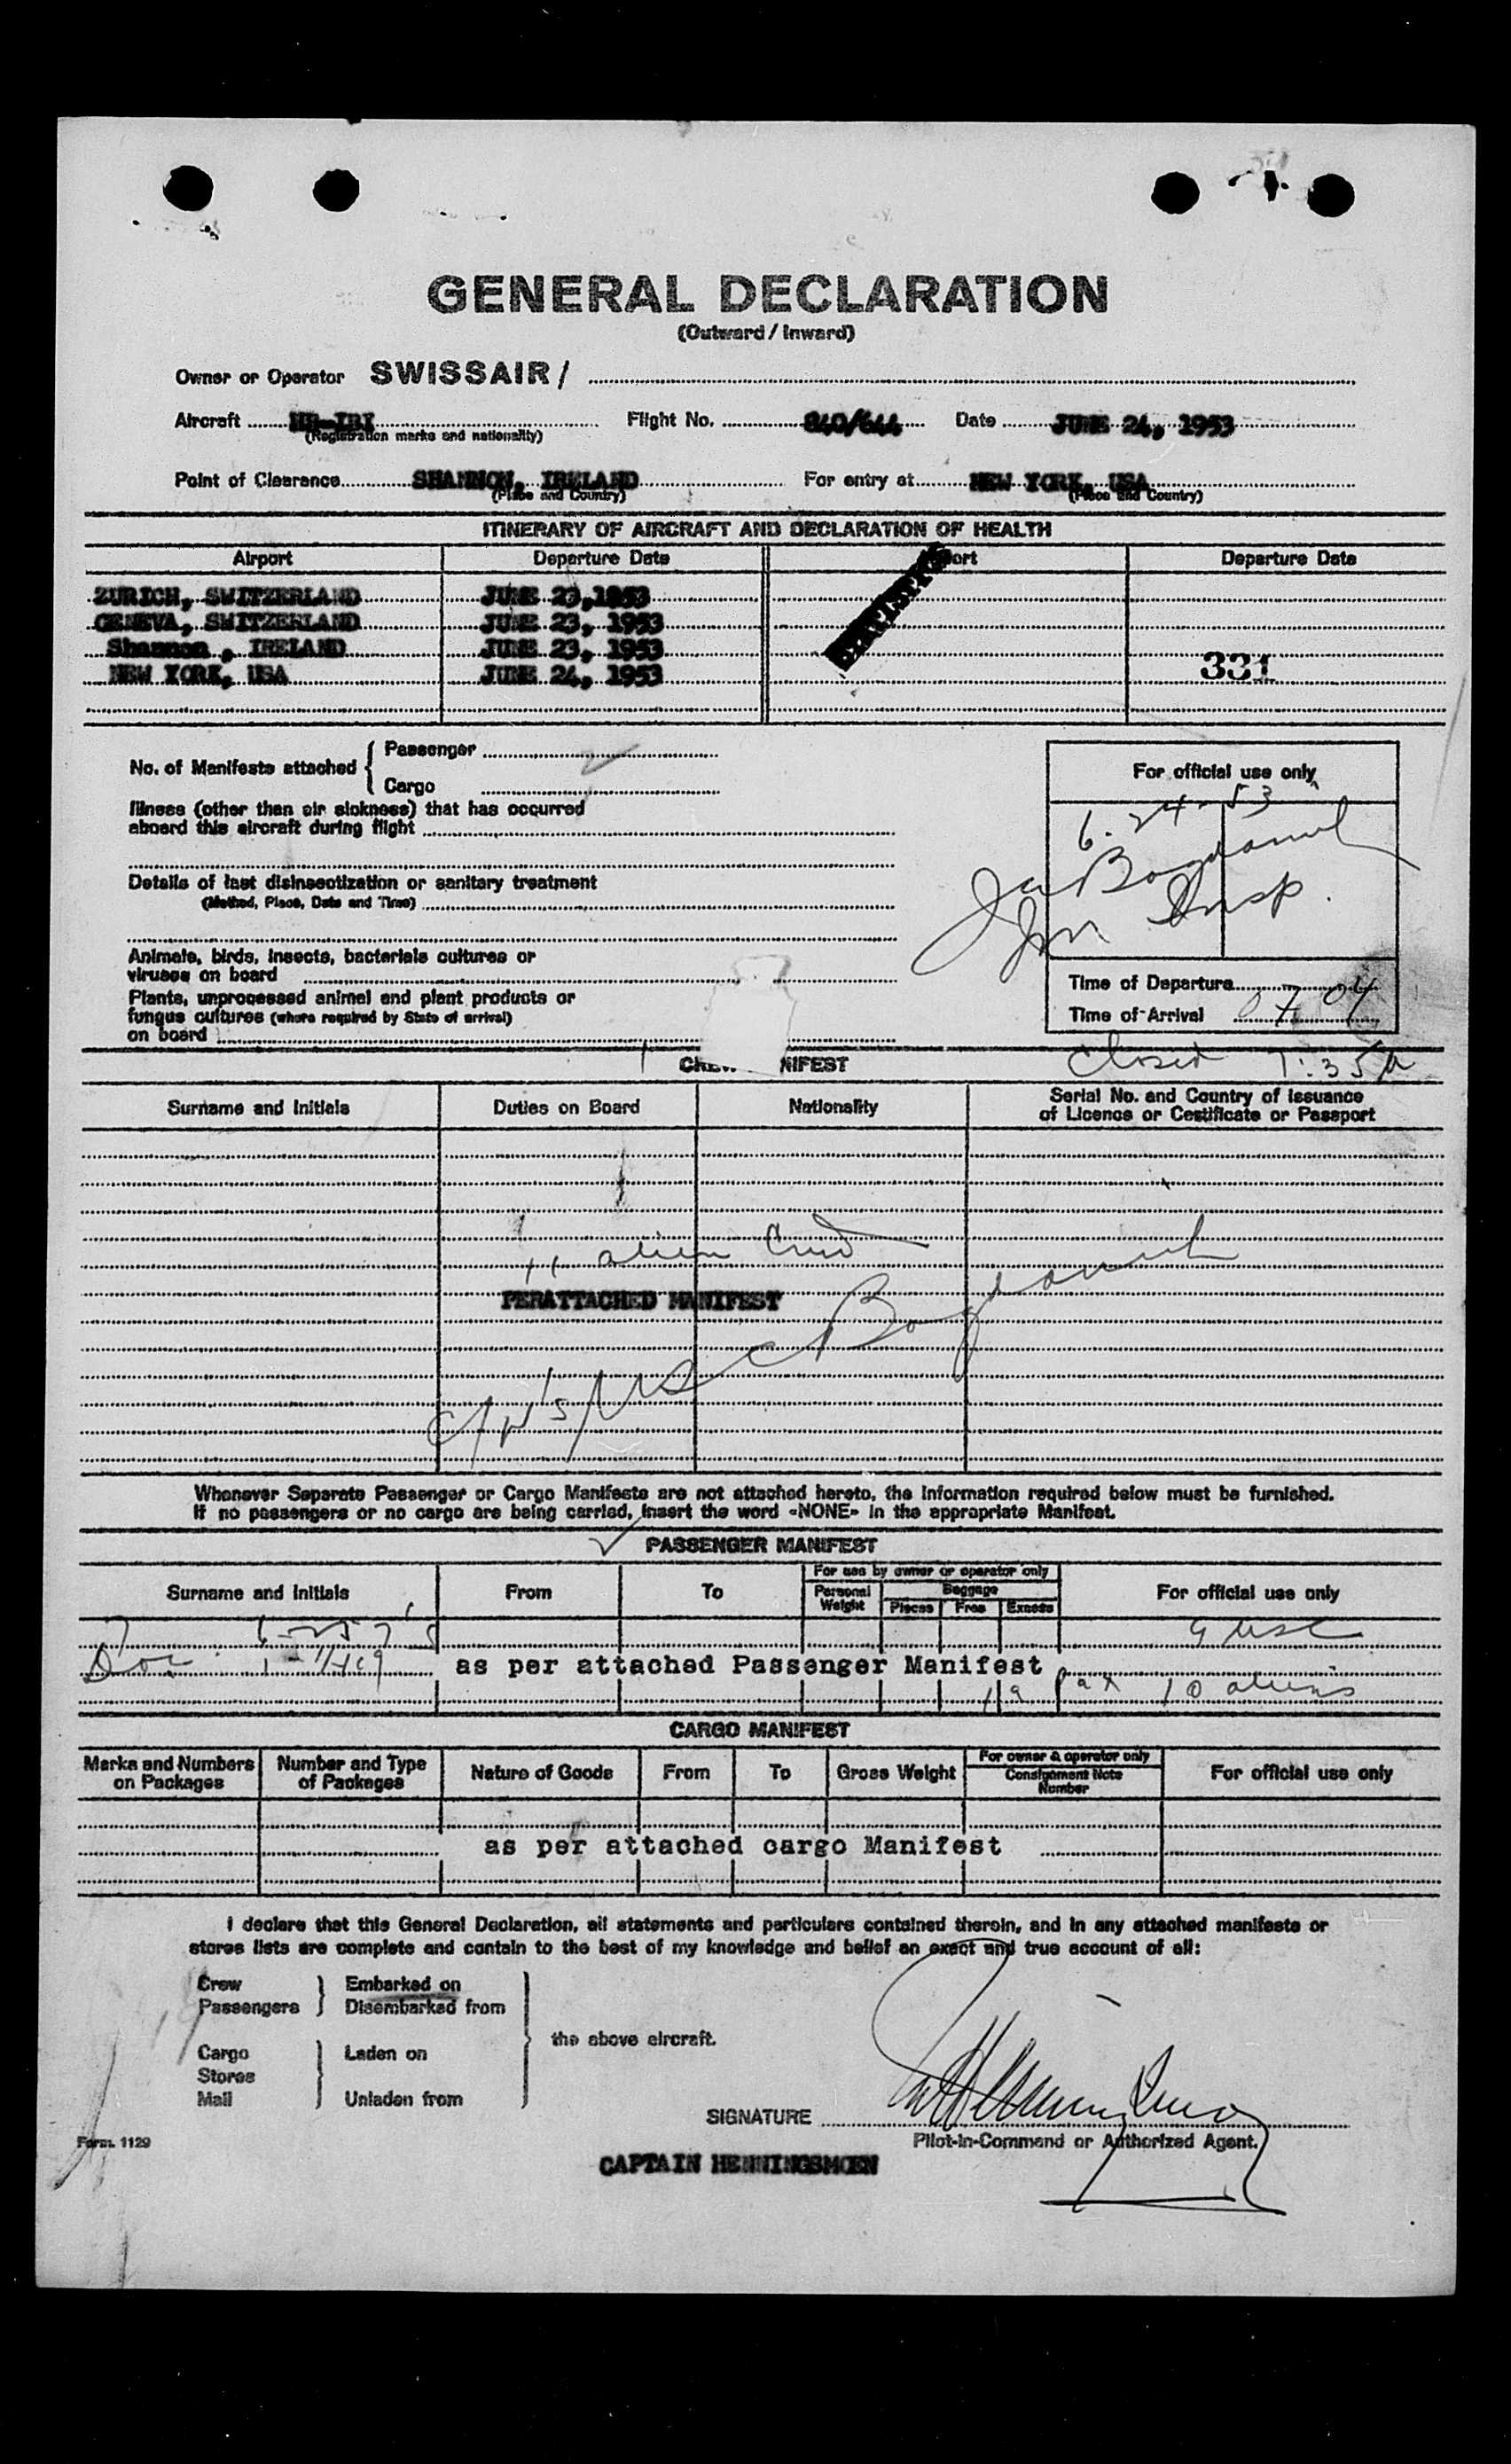 GENERAL DECLARATION
(Outward / Inward)
Owner or Operator SWISSAIR /
Aircraft HB-IBI Flight No. 840/644 Date JUNE 24, 1953
(Registration marks and nationality)
Point of Clearance SHANNON, IRELAND For entry at NEW YORK, USA
(Place and Country) (Place and Country)
ITINERARY OF AIRCRAFT AND DECLARATION OF HEALTH
Airport Departure Date Departure Date
ZURICH, SWITZERLAND JUNE 23, 1953
GENEVA, SWITZERLAND JUNE 23, 1953
Shannon, IRELAND JUNE 23, 1953
NEW YORK, USA JUNE 24, 1953
STATISTICS
331
No. of Manifests attached { Passenger 2
Cargo
Illness (other than air sickness) that has occurred
aboard this aircraft during flight
Details of last disinsectization or sanitary treatment
(Method, Place, Date and Time)
Animals, birds, insects, bacterials cultures or
viruses on board
Plants, unprocessed animal and plant products or
fungus cultures (where required by State of arrival)
on board
For official use only
6-24-53
Insp.
Time of Departure
Time of Arrival 0704
Closed 7:35A
NIFEST
Surname and Initials Duties on Board Nationality Serial No. and Country of Issuance
of Licence or Certificate or Passport
11 alien
PERATTACHED MANIFEST
Whenever Separate Passenger or Cargo Manifests are not attached hereto, the information required below must be furnished.
If no passengers or no cargo are being carried, insert the word «NONE» in the appropriate Manifest.
PASSENGER MANIFEST
Surname and Initials From To For use by owner or operator only For official use only
Personal Weight Baggage
Pieces Free Excess
9 USC
as per attached Passenger Manifest
19 Pax 10 aliens
CARGO MANIFEST
Marks and Numbers on Packages Number and Type of Packages Nature of Goods From To Gross Weight For owner & operator only Consignment Note Number For official use only
as per attached cargo Manifest
I declare that this General Declaration, all statements and particulars contained therein, and in any attached manifests or
stores lists are complete and contain to the best of my knowledge and belief an exact and true account of all:
Crew } Embarked on
Passengers Disembarked from
the above aircraft.
Cargo Laden on
Stores
Mail Unladen from
SIGNATURE
Form. 1129 Pilot-in-Command or Authorized Agent.
CAPTAIN HENNINGSMOEN